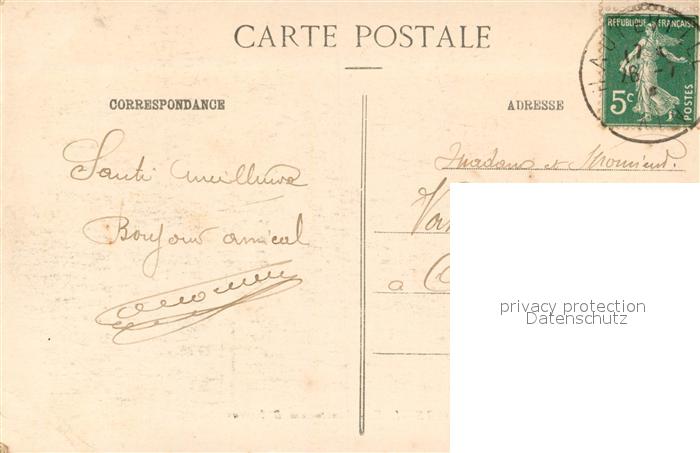 CARTE POSTALE
REPUBLIQUE FRANÇAISE
5c
POSTES
CORRESPONDANCE
ADRESSE
Santé meilleure
Bonjour amical
Madame et Monsieur
à
privacy protection
Datenschutz